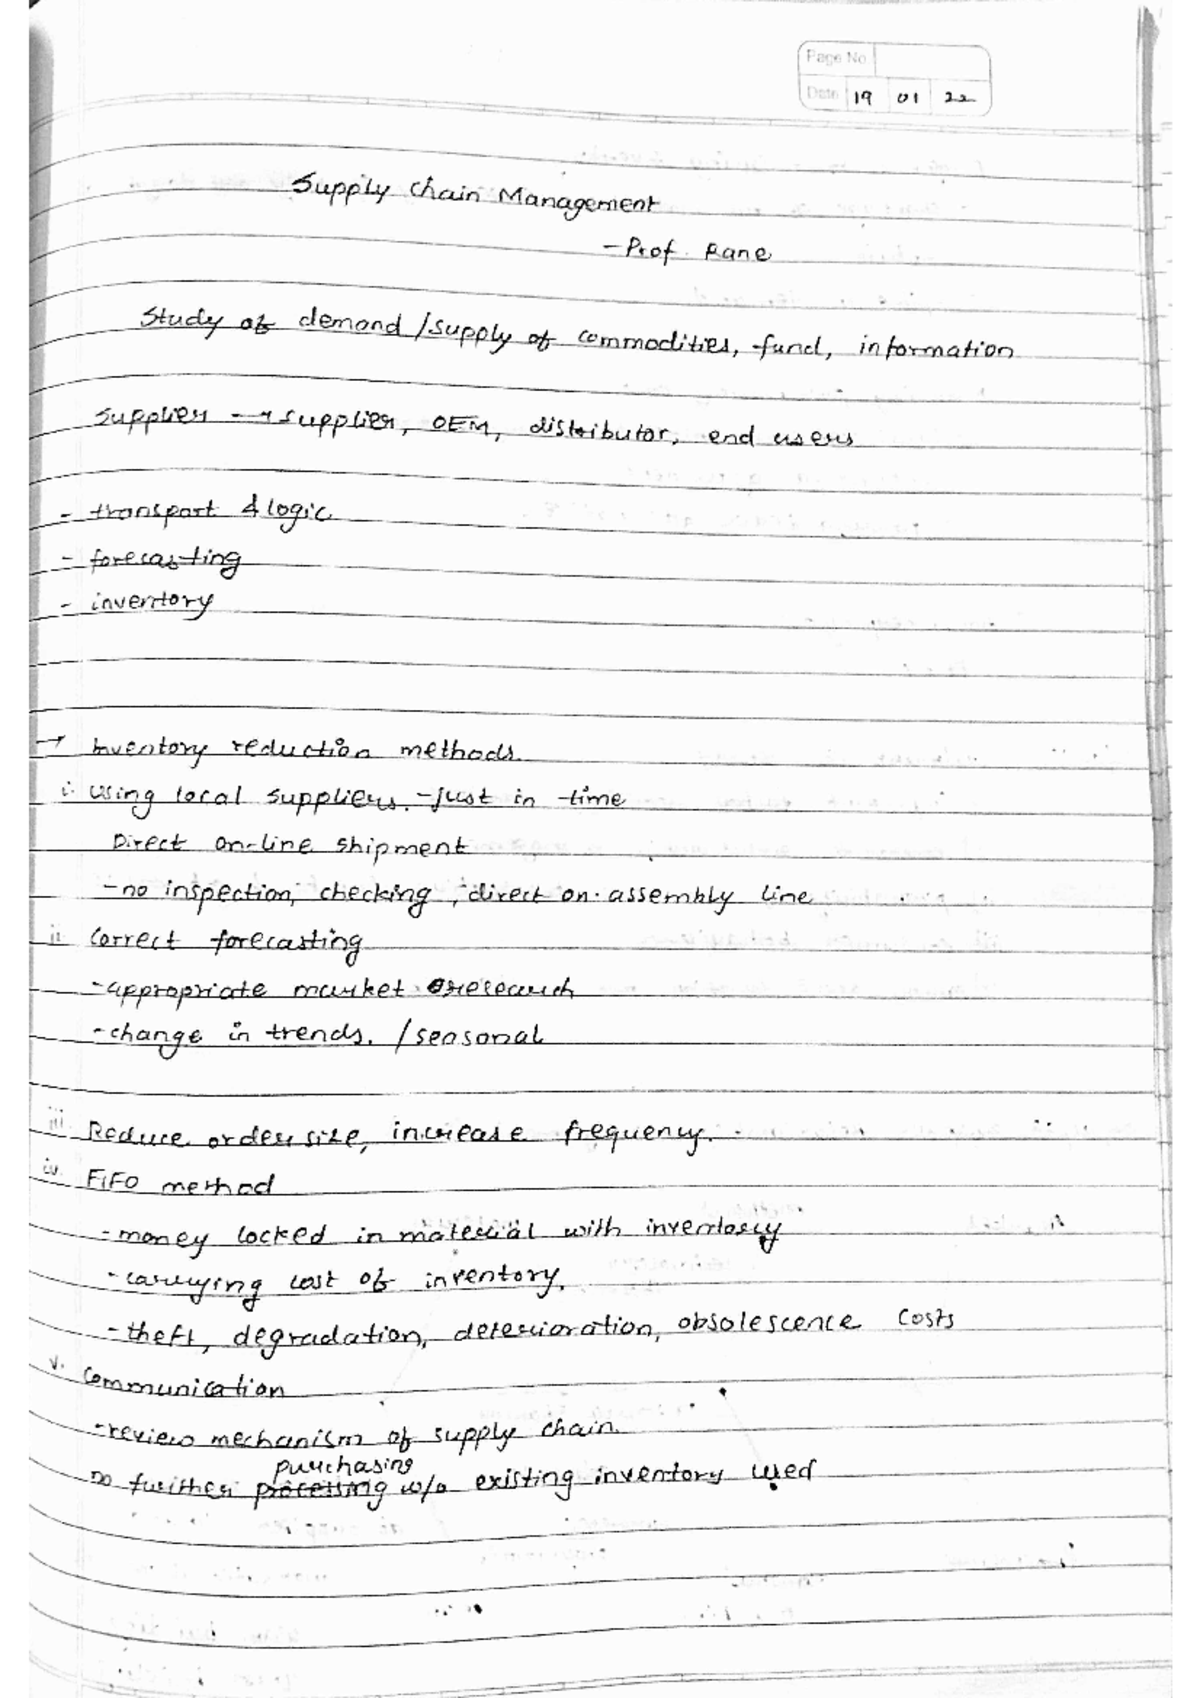 Page No
Date 19 01 22
Supply Chain Management
- Prof. Rane
Study of demand / supply of commodities, fund, information
Supplier → supplier, OEM, distributor, end users
- transport & logic
- forecasting
- inventory
→ Inventory reduction methods.
i. Using local suppliers. - just in -time
Direct on-line shipment
- no inspection, checking, direct on assembly line
ii. Correct forecasting
- appropriate market research
- change in trends. / seasonal
iii. Reduce order size, increase frequency.
iv. FIFO method
- money locked in material with inventory
- carrying cost of inventory.
- theft, degradation, deterioration, obsolescence costs
v. Communication
- review mechanism of supply chain
purchasing
no further processing w/o existing inventory used